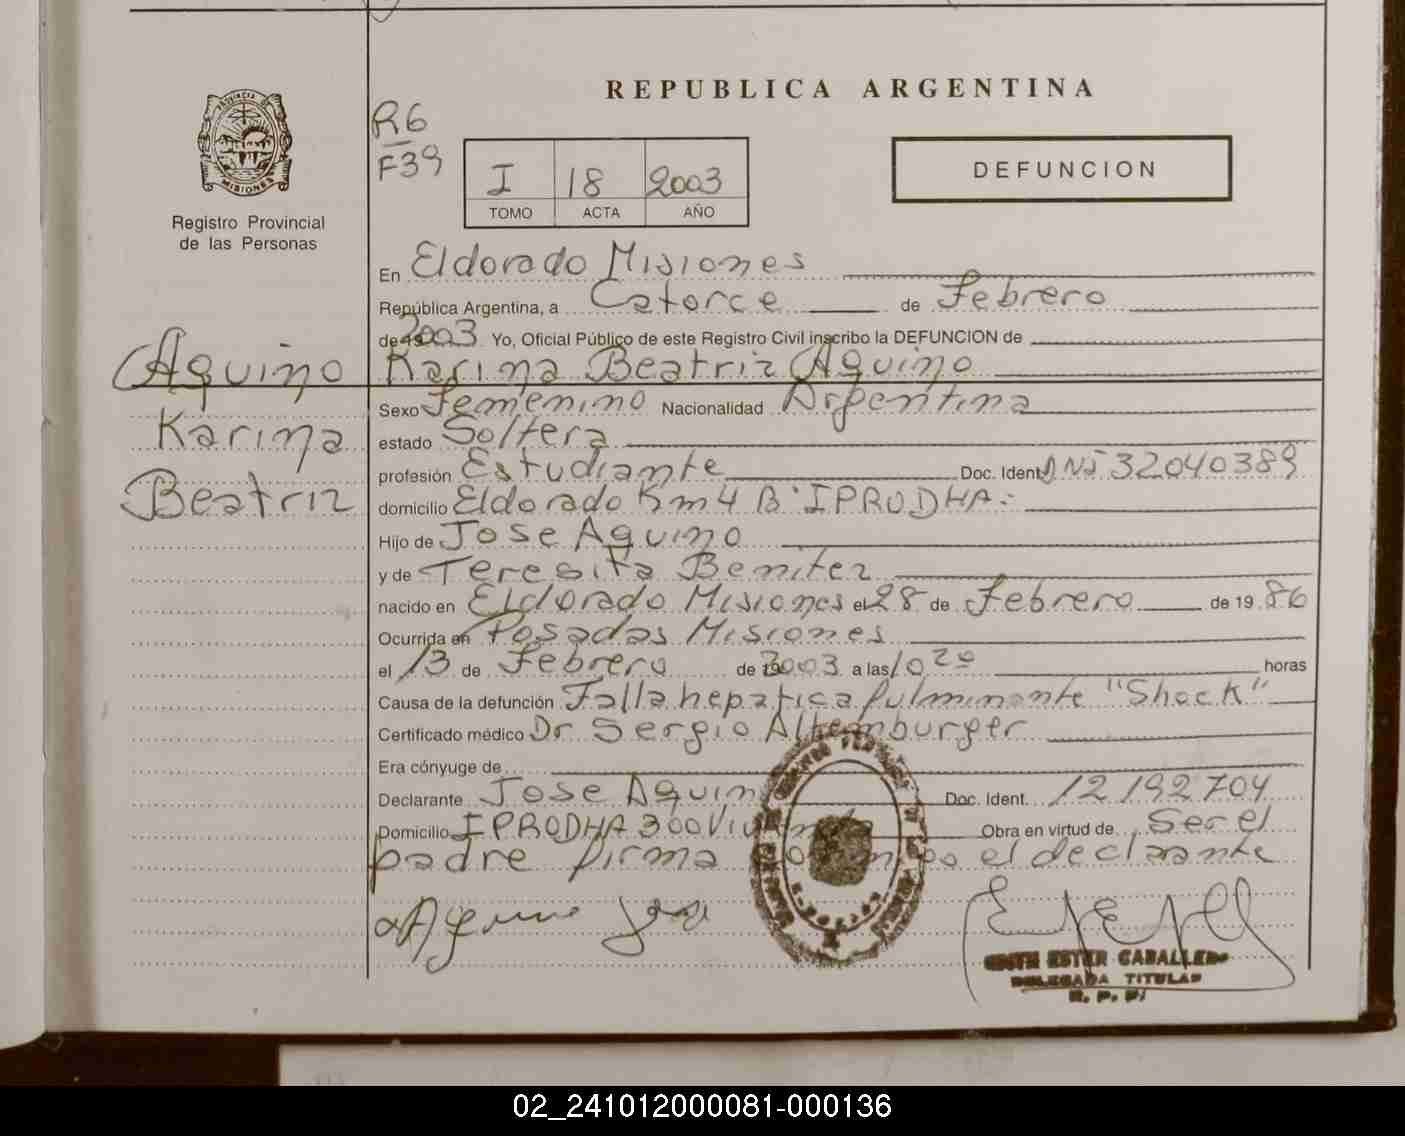 REPUBLICA ARGENTINA
PROVINCIA DE
MISIONES
Registro Provincial
de las Personas
R6
F39
I 18 2003
TOMO ACTA AÑO
DEFUNCION
En Eldorado Misiones
República Argentina, a Catorce de Febrero
de 2003 Yo, Oficial Público de este Registro Civil inscribo la DEFUNCION de
Aquino
Karina
Beatriz
Karina Beatriz Aquino
Sexo Femenino Nacionalidad Argentina
estado Soltera
profesión Estudiante Doc. Ident. DNI 32040389
domicilio Eldorado Km 4 B° IPRODHA.
Hijo de Jose Aquino
y de Teresita Benitez
nacido en Eldorado Misiones el 28 de Febrero de 19 86
Ocurrida en Posadas Misiones
el 13 de Febrero de 2003 a las 10 20 horas
Causa de la defunción Falla hepatica fulminante "Shock"
Certificado médico Dr Sergio Altemburger
Era cónyuge de
Declarante Jose Aquino Doc. Ident. 12 192 704
Domicilio IPRODHA 300 Viviendas Obra en virtud de Ser el
padre firma el declarante
Aquino Jose
EDITH ESTER CABALLERO
DELEGADA TITULAR
R. P. P.
02_241012000081-000136